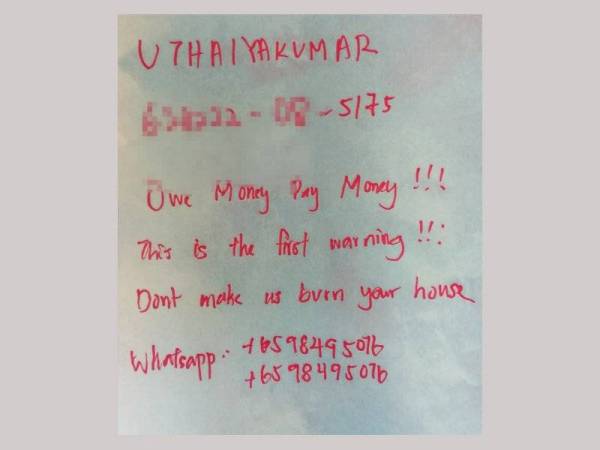 UTHAIYAKUMAR
-5175
Owe Money Pay Money !!!
This is the first warning !!!
Dont make us burn your house
Whatsapp: +6598495076
+6598495076